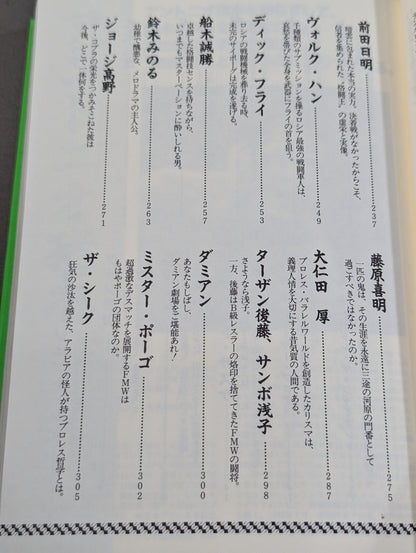 前田日明………237
暗愁に包まれた本当の実力。決着戦がなかったからこそ、
信者を集められた、"格闘王"の虚栄と実像。
ヴォルク・ハン………249
千種類のサブミッションを操るロシア最強の戦闘軍人は、
哀愁を帯びた全身を武器にフライの首を狙う。
ディック・フライ………253
ロシアの戦闘機械を葬り去る時、
未完のサイボーグは完成を遂げる。
船木誠勝………257
卓越した格闘技センスを持ちながら、
いつまでもマスターベーションに酔いしれる男。
鈴木みのる………263
幼稚で醜悪な、メロドラマの主人公。
ジョージ高野………271
ザ・コブラの栄光をつかみそこねた彼は
今後、どこで一体何をする。
藤原喜明………275
一匹の鬼は、その生涯を永遠に三途の河原の門番として
過ごすべきではなかったのか。
大仁田 厚………287
プロレス・パラレルワールドを創造したカリスマは、
義理人情を大切にする昔気質の人間である。
ターザン後藤、サンボ浅子………298
さようなら浅子。
一方、後藤はB級レスラーの烙印を捨ててきたFMWの闘将。
ダミアン………300
あなたもしばし、
ダミアン劇場をご堪能あれ!
ミスター・ポーゴ………302
超過激なデスマッチを展開するFMWは
もはやポーゴの団体なのか。
ザ・シーク………305
狂気の沙汰を越えた、アラビアの怪人が持つプロレス哲学とは。